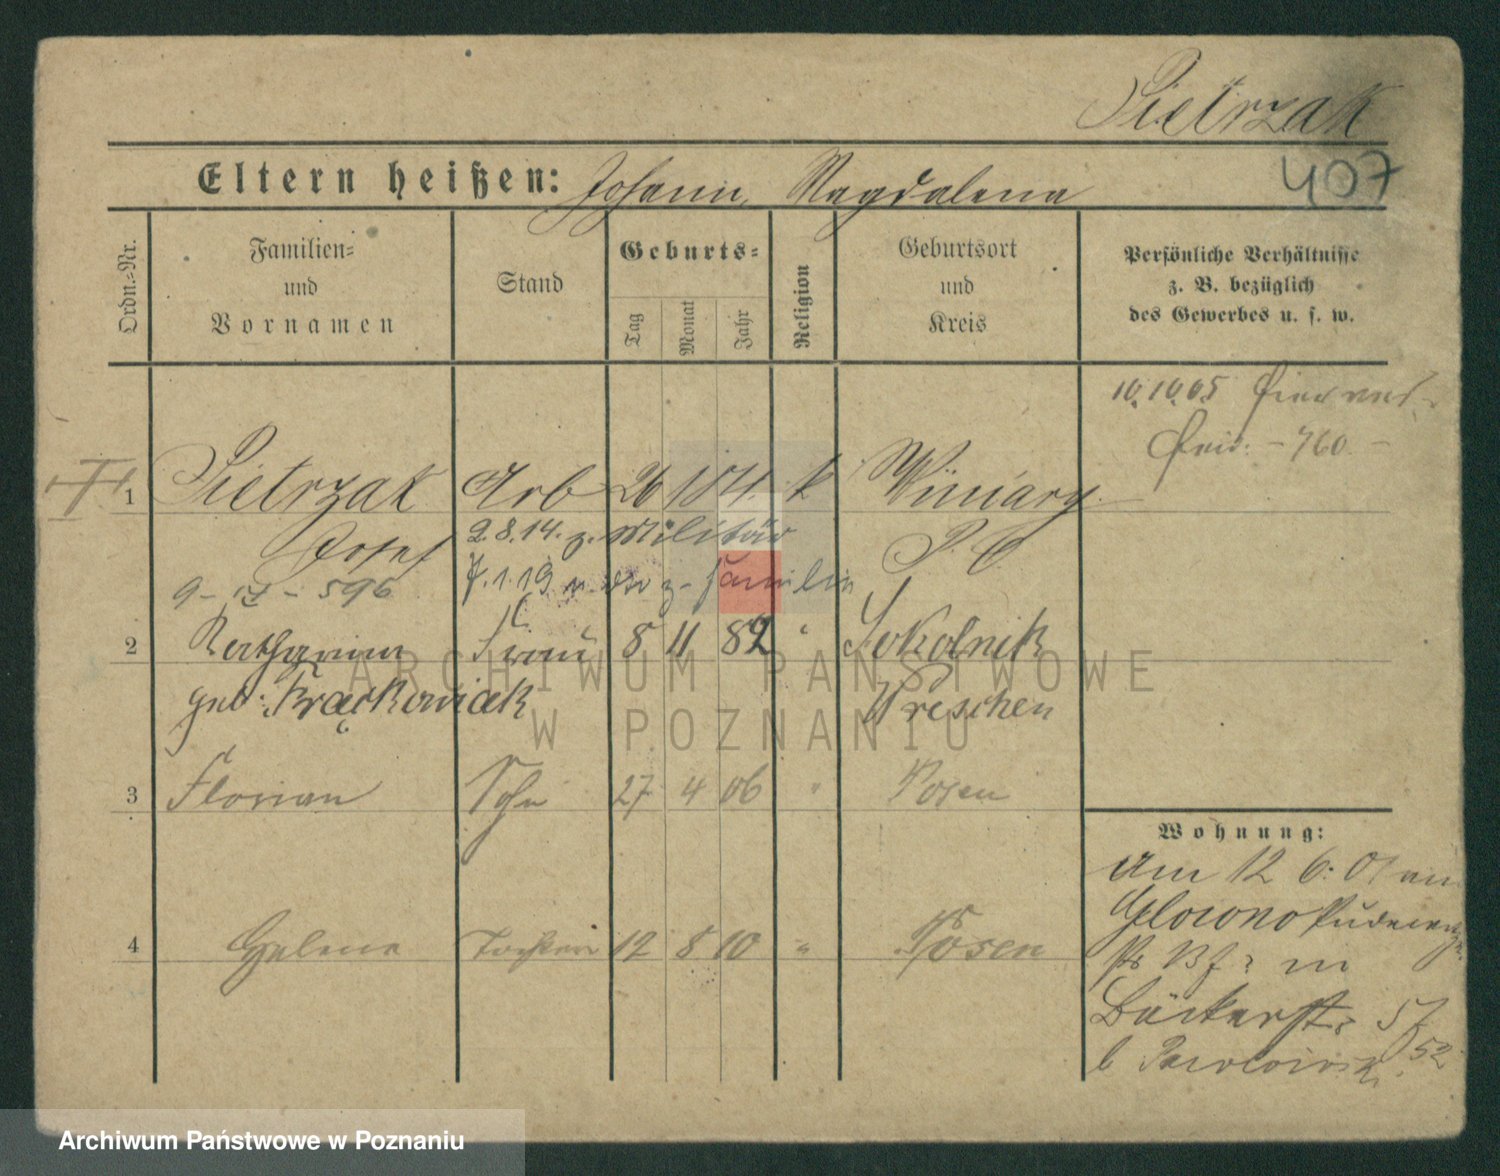 Pietrzak
Eltern heißen: Johann, Magdalena
407
Ordn.=Nr.
Familien=
und
Vornamen
Stand
Geburts=
Tag
Monat
Jahr
Religion
Geburtsort
und
Kreis
Persönliche Verhältnisse
z. B. bezüglich
des Gewerbes u. s. w.
10.10.05
760
1 Pietrzak Arb 26 1 81. k Winiary
Josef 2.8.14. z. Militär P. O.
1.19 z. Familie
9 - IX - 596
2 Katharina Frau 8 11 82 " Sokolnik
geb. Frąckowiak Wreschen
3 Florian Sohn 27 4 06 " Posen
Wohnung:
Am 12 6. 01 von
Glowno
4 Helene Tochter 12 8 10 " Posen
in
Bäckerstr. 57
b. 52
ARCHIWUM PAŃSTWOWE
W POZNANIU
Archiwum Państwowe w Poznaniu